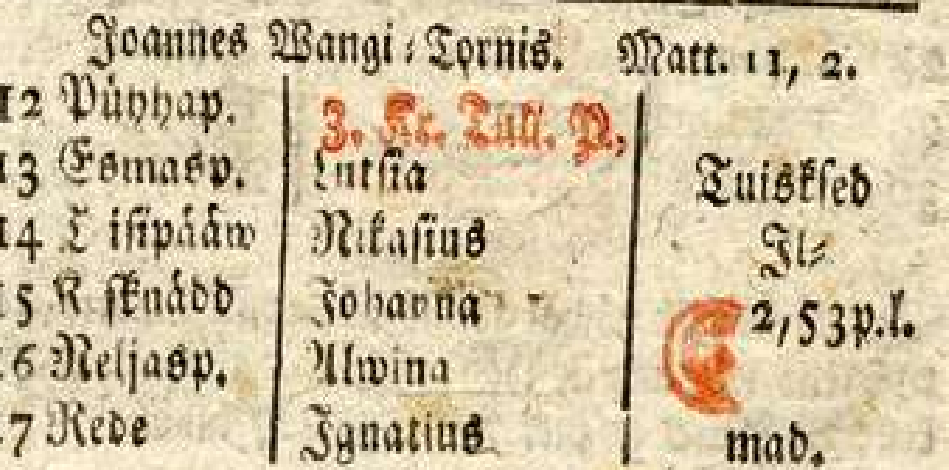 Joannes Wangi-Tornis. Matt. 11, 2.
12 Pühhap. 3. Kr. Tull. P.
13 Esmasp. Lutsia Tuisksed
14 T isipääw Nikasius Il-
15 K sknädd Johanna 2,53p.l.
16 Neljasp. Alwina
17 Rede Ignatius mad.